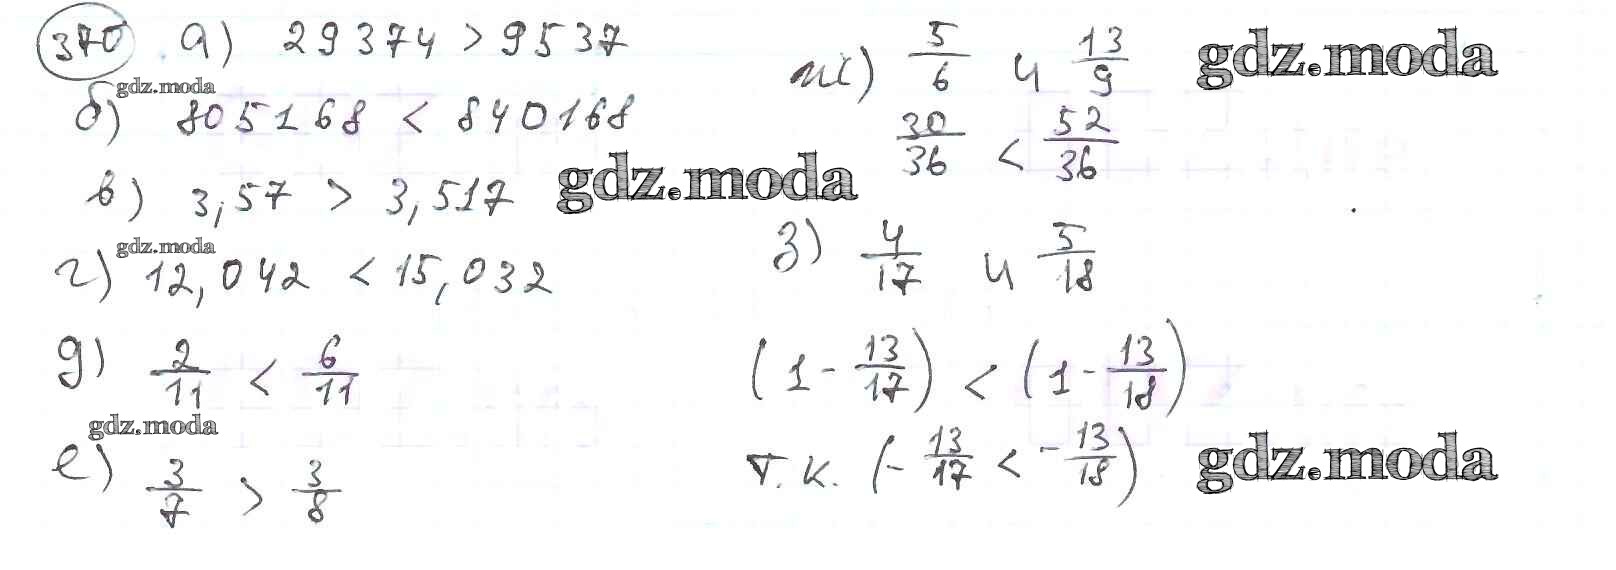 370 а) 29374 > 9537
gdz.moda
б) 805168 < 840168
в) 3,57 > 3,517
gdz.moda
gdz.moda
г) 12,042 < 15,032
д) 2/11 < 6/11
gdz.moda
е) 3/7 > 3/8
ж) 5/6 и 13/9
gdz.moda
30/36 < 52/36
з) 4/17 и 5/18
(1 - 13/17) < (1 - 13/18)
т.к. (- 13/17 < - 13/18)
gdz.moda